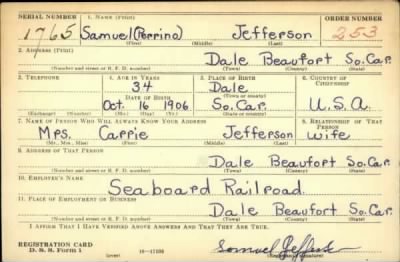 SERIAL NUMBER 1. NAME (Print) ORDER NUMBER
1765 Samuel (Perrino) Jefferson 253
(First) (Middle) (Last)
2. ADDRESS (Print)
Dale Beaufort So. Car.
(Number and street or R. F. D. number) (Town) (County) (State)
3. TELEPHONE 4. AGE IN YEARS 5. PLACE OF BIRTH 6. COUNTRY OF CITIZENSHIP
34 Dale
DATE OF BIRTH (Town or county)
Oct. 16 1906 So. Car. U.S.A.
(Exchange) (Number) (Mo.) (Day) (Yr.) (State or country)
7. NAME OF PERSON WHO WILL ALWAYS KNOW YOUR ADDRESS 8. RELATIONSHIP OF THAT PERSON
Mrs. Carrie Jefferson wife
(Mr., Mrs., Miss) (First) (Middle) (Last)
9. ADDRESS OF THAT PERSON
Dale Beaufort So. Car.
(Number and street or R. F. D. number) (Town) (County) (State)
10. EMPLOYER'S NAME
Seaboard Railroad.
11. PLACE OF EMPLOYMENT OR BUSINESS
Dale Beaufort So. Car.
(Number and street or R. F. D. number) (Town) (County) (State)
I AFFIRM THAT I HAVE VERIFIED ABOVE ANSWERS AND THAT THEY ARE TRUE.
REGISTRATION CARD
D. S. S. Form 1 (over)